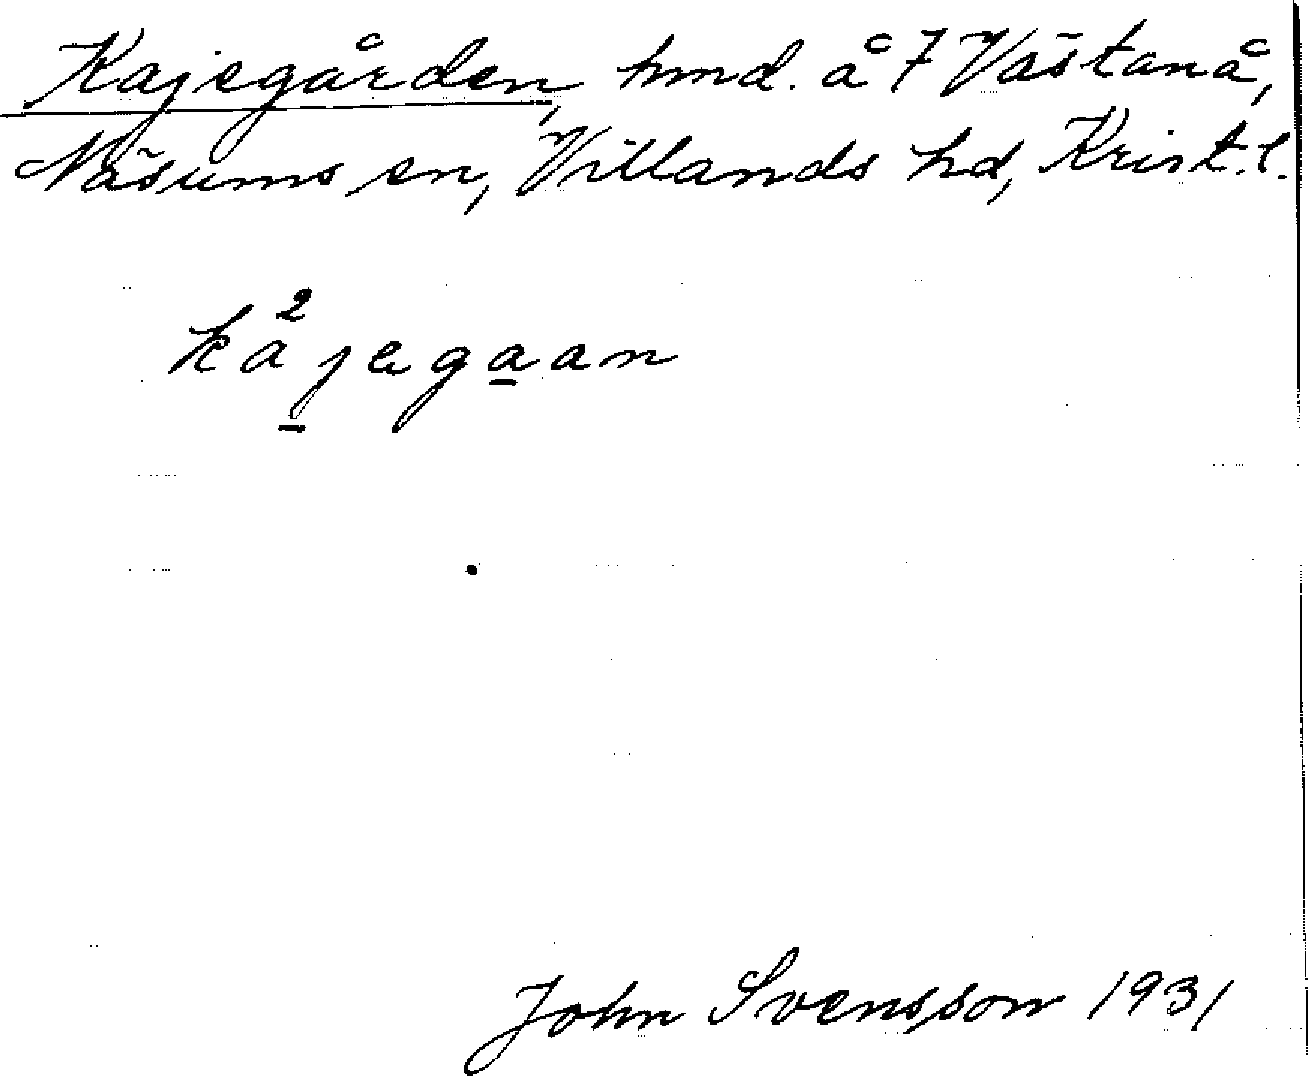 Kajegården, hmd. å 7 Västanå,
Näsums sn, Villands hd, Krist.l.
kå²jegaan
John Svensson 1931